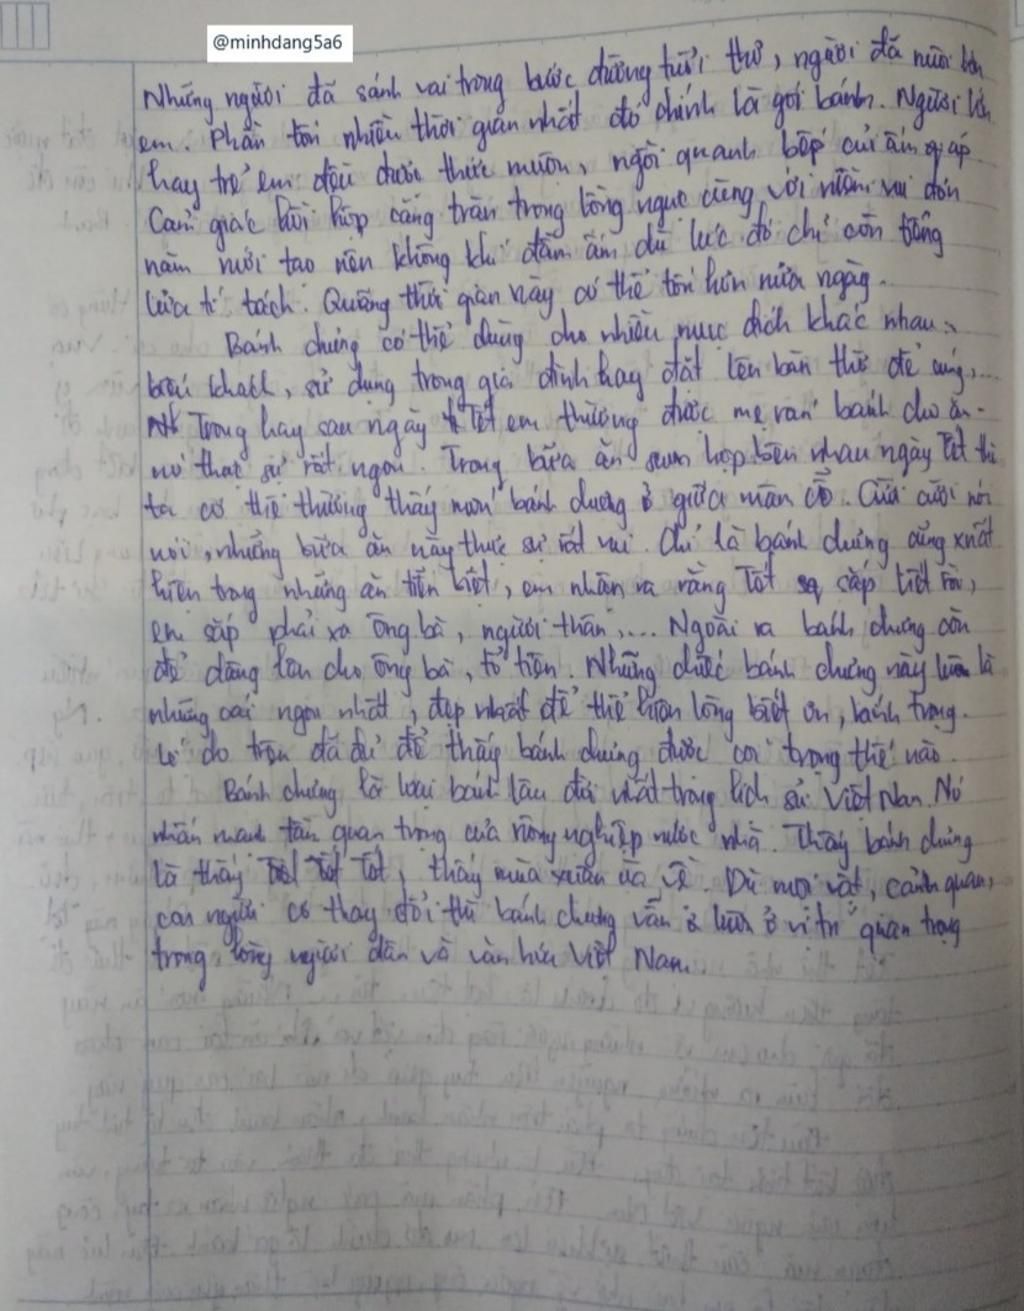 @minhdang5a6
Những người đã sánh vai trong bước đường tuổi thơ, người đã nuôi lớn
em. Phần tốn nhiều thời gian nhất đó chính là gói bánh. Người lớn
hay trẻ em đều thức muộn, ngồi quanh bếp củi ấm áp
Cảm giác hồi hộp căng tràn trong lồng ngực cùng với niềm vui đón
năm mới tạo nên không khí đầm ấm dù lúc đó chỉ còn tiếng
lửa tí tách. Quãng thời gian này có thể tốn hơn nửa ngày.
Bánh chưng có thể dùng cho nhiều mục đích khác nhau:
biếu khách, sử dụng trong gia đình hay đặt lên bàn thờ để cúng,...
Trong hay sau ngày Tết em thường được mẹ rán bánh cho ăn.
nó thật sự rất ngon. Trong bữa ăn sum họp bên nhau ngày Tết thì
ta có thể thường thấy món bánh chưng ở giữa mâm cỗ. Cười nói
những bữa ăn này thực sự rất vui. Chỉ là bánh chưng cũng xuất
hiện trong những ăn tiễn biệt, em nhận ra rằng Tết sắp tiệt rồi,
em sắp phải xa ông bà, người thân,... Ngoài ra bánh chưng còn
để dâng lên cho ông bà, tổ tiên. Những chiếc bánh chưng này luôn là
những cái ngon nhất, đẹp nhất để thể hiện lòng biết ơn, kính trọng.
Lí do trên đã đủ để thấy bánh chưng được coi trọng thế nào.
Bánh chưng là loại bánh lâu đời nhất trong lịch sử Việt Nam. Nó
nhấn mạnh tầm quan trọng của nông nghiệp nước nhà. Thấy bánh chưng
là thấy Tết, thấy mùa xuân ùa về. Dù mọi vật, cảnh quan,
con người có thay đổi thì bánh chưng vẫn luôn ở vị trí quan trọng
trong lòng người dân và văn hóa Việt Nam.